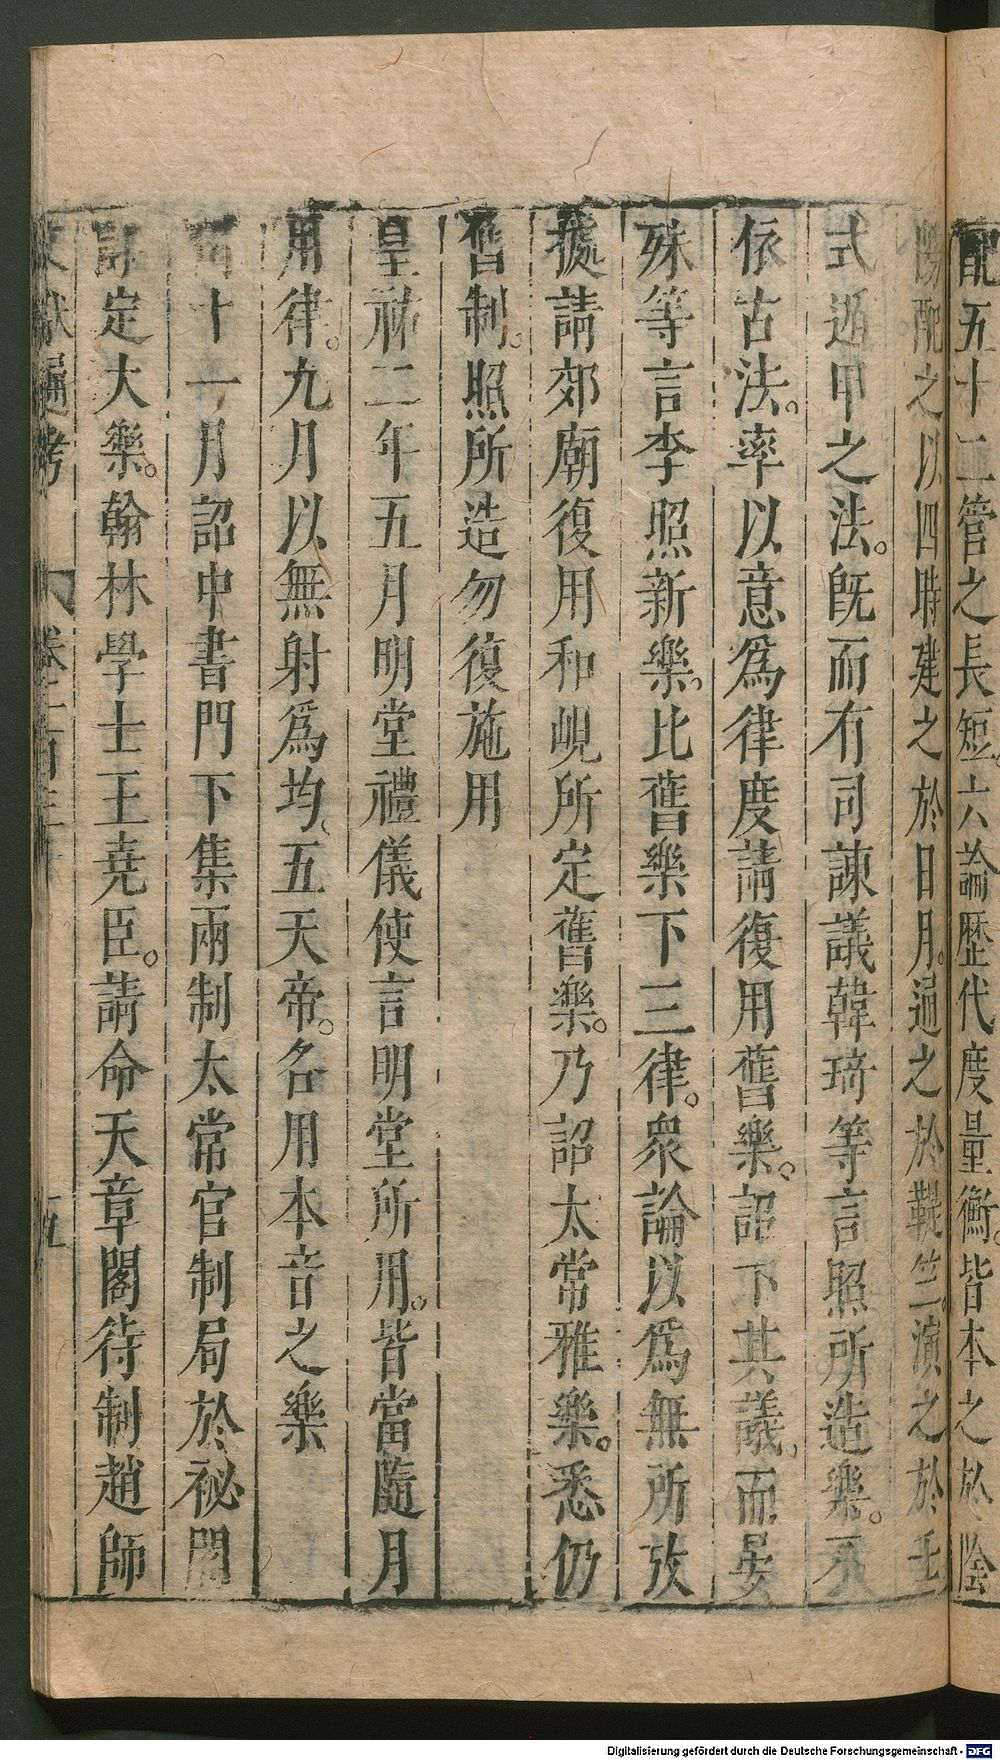 配五十二管之長短。六論歷代度量衡。皆本之於陰
陽配之以四時建之於日月。通之於鞮竺。演之於壬
式遁甲之法。旣而有司諫議韓琦等言照所造樂。不
依古法。率以意爲律度請復用舊樂。詔下其議。而晏
殊等言李照新樂。比舊樂下三律。衆論以爲無所攷
據請郊廟復用和峴所定舊樂。乃詔太常雅樂。悉仍
舊制。照所造勿復施用
皇祐二年五月明堂禮儀使言明堂所用。皆當隨月
用律。九月以無射爲均。五天帝。各用本音之樂
十一月詔中書門下集兩制太常官制局於祕閣
詳定大樂。翰林學士王堯臣。請命天章閣待制趙師
文獻通考 卷一百三十 五
Digitalisierung gefördert durch die Deutsche Forschungsgemeinschaft - DFG